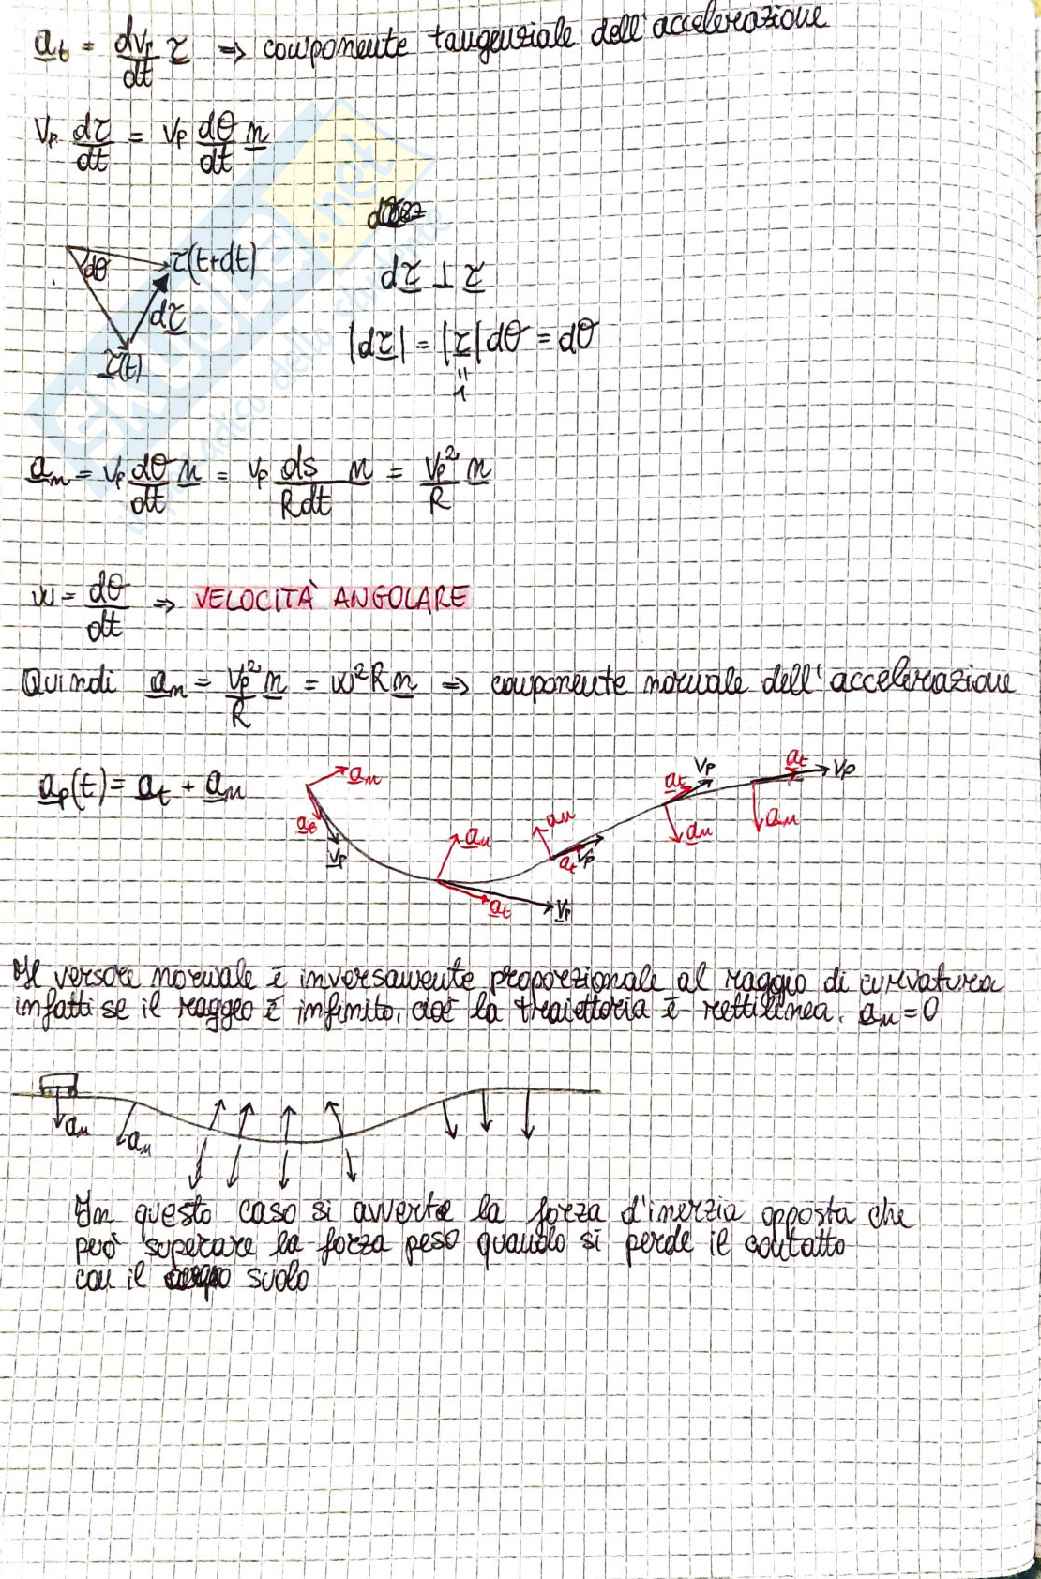 a_t = dv_p/dt τ ⇒ componente tangenziale dell'accelerazione
v_p dτ/dt = v_p dθ/dt n
τ(t+dt)
dθ
dτ ⊥ τ
dτ
|dτ| = |τ| dθ = dθ
τ(t)
"
1
a_n = v_p dθ/dt n = v_p ds/Rdt n = v_p²/R n
w = dθ/dt ⇒ VELOCITÀ ANGOLARE
Quindi a_n = v_p²/R n = w²R n ⇒ componente normale dell'accelerazione
a_p(t) = a_t + a_n
a_n
a_t
v_p
a_n
a_t
v_p
a_n
a_t
v_p
a_t
v_p
a_n
a_t
v_p
a_n
Il versore normale è inversamente proporzionale al raggio di curvatura
infatti se il raggio è infinito, cioè la traiettoria è rettilinea. a_n = 0
a_n
a_n
In questo caso si avverte la forza d'inerzia opposta che
può superare la forza peso quando si perde il contatto
con il suolo